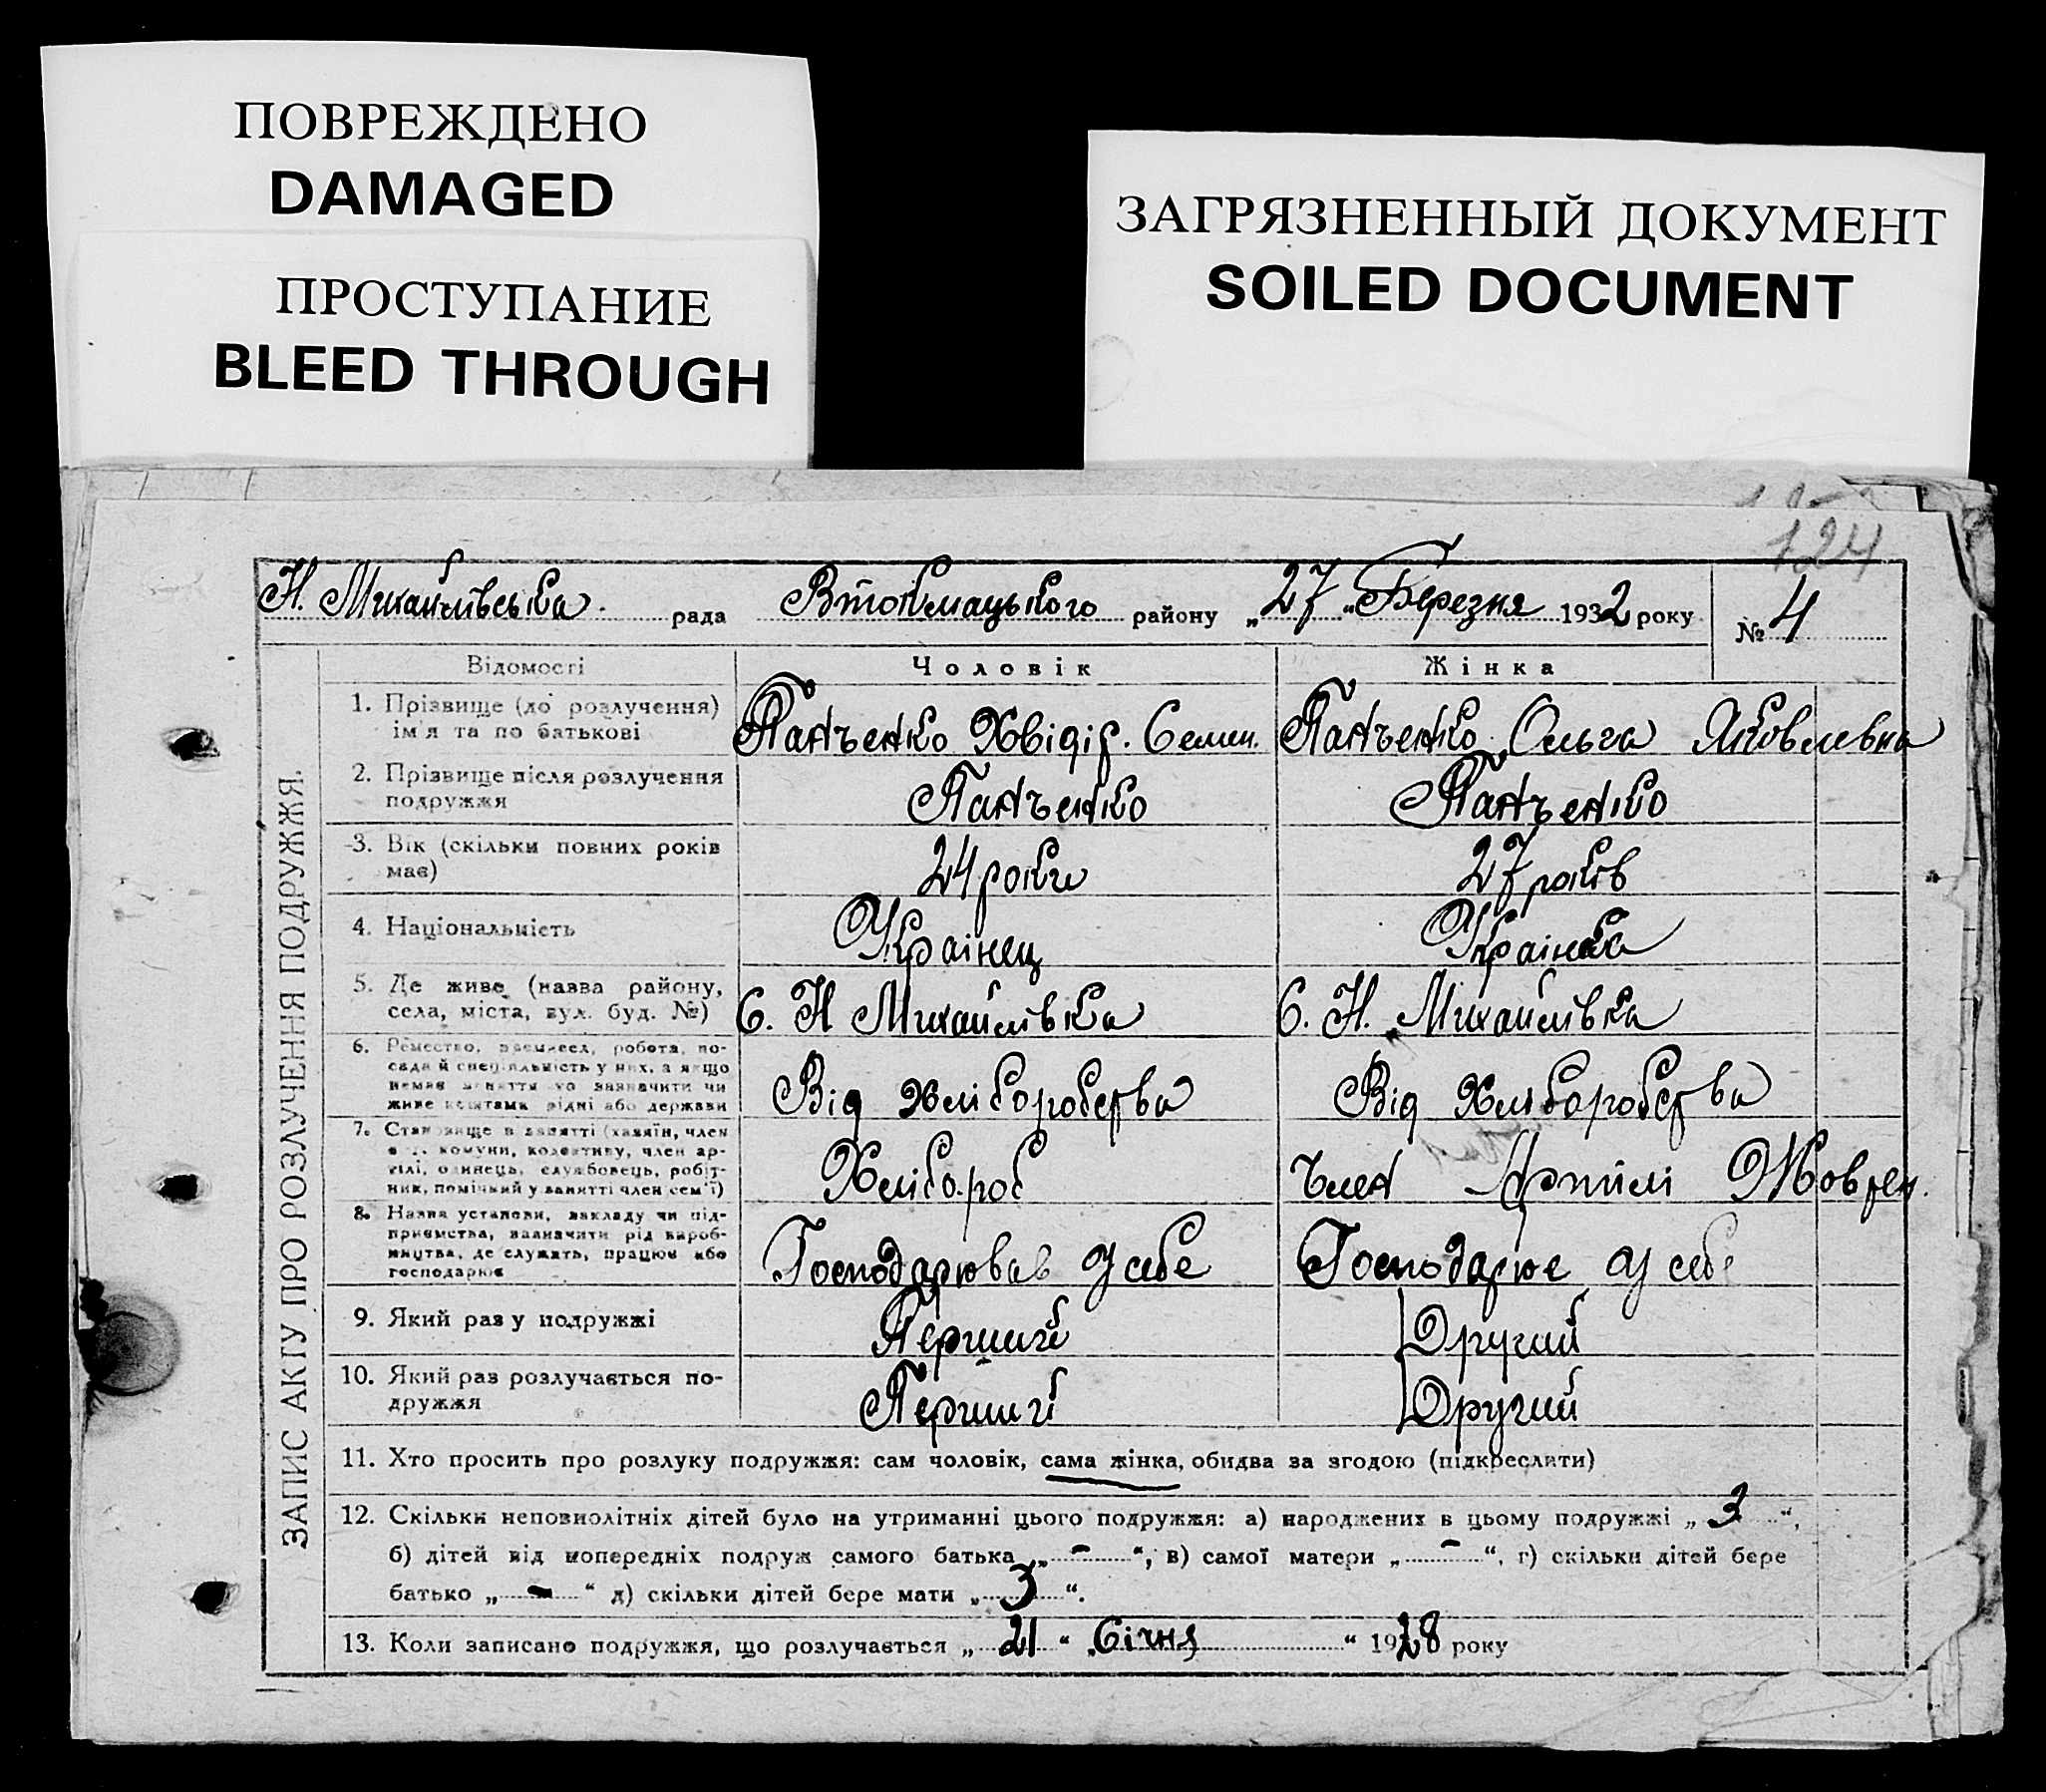 ПОВРЕЖДЕНО
DAMAGED
ПРОСТУПАНИЕ
BLEED THROUGH
ЗАГРЯЗНЕННЫЙ ДОКУМЕНТ
SOILED DOCUMENT
124
Н. Михайлівська рада Втокмацького району „27" Березня 1932 року № 4
ЗАПИС АКТУ ПРО РОЗЛУЧЕННЯ ПОДРУЖЖЯ.
Відомості Чоловік Жінка
1. Прізвище (до розлучення) ім'я та по батькові Панченко Хвідір. Семен. Панченко Ольга Яковлевна
2. Прізвище після розлучення подружжя Панченко Панченко
3. Вік (скільки повних років має) 24 роки 27 років
4. Національність Украінец Украінка
5. Де живе (назва району, села, міста, вул. буд. №) С. Н Михайлівка С. Н. Михайлівка
6. Ремество, промисел, робота, посада й спеціяльність у них, а якщо немає заняття то зазначити чи живе коштами рідні або держави Від хліборобства Від Хліборобства
7. Становище в занятті (хазяїн, член комуни, колективу, член артілі, одинець, службовець, робітник, помічний у занятті член сем'ї) Хлібороб Член Артілі Жовтен.
8. Назва установи, закладу чи підприємства, зазначити рід виробництва, де служить, працює або господарює Господарював у себе Господарює у себе
9. Який раз у подружжі Перший Другий
10. Який раз розлучається подружжя Перший Другий
11. Хто просить про розлуку подружжя: сам чоловік, сама жінка, обидва за згодою (підкреслити)
12. Скільки неповнолітніх дітей було на утриманні цього подружжя: а) народжених в цьому подружжі „ 3 ",
б) дітей від попередніх подруж самого батька „ - ", в) самої матери „ - ", г) скільки дітей бере
батько „ - " д) скільки дітей бере мати „ 3 ".
13. Коли записано подружжя, що розлучається „ 21 " „Січня " 1928 року